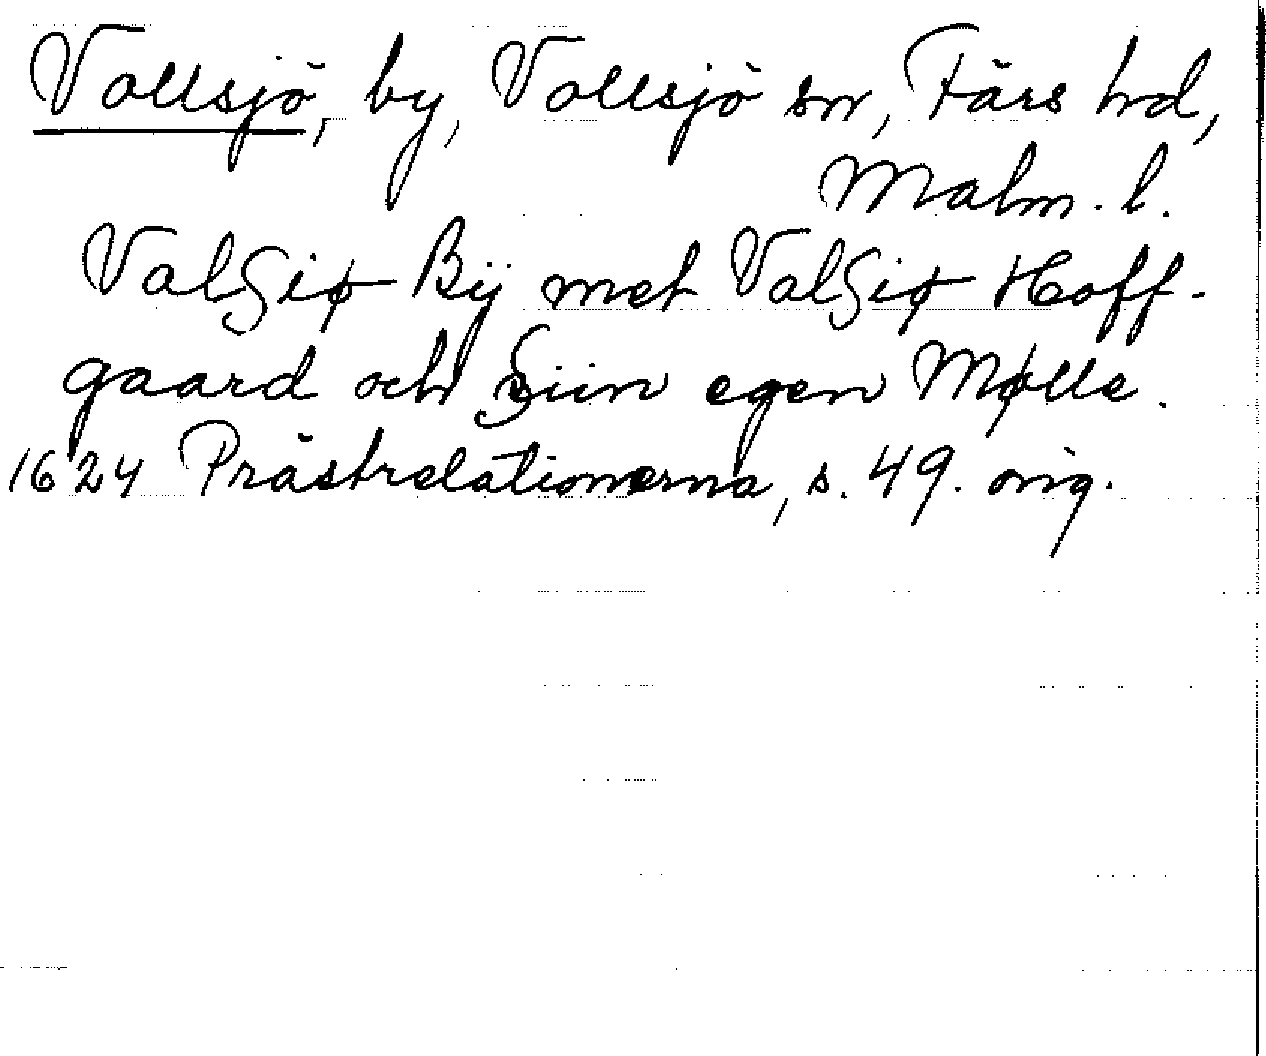 Vollsjö, by, Vollsjö sn, Färs hd,
Malm. l.
ValSiø Bÿ met ValSiø Hoff-
gaard och Siin egen Mølle.
1624 Prästrelationerna, s. 49. orig.